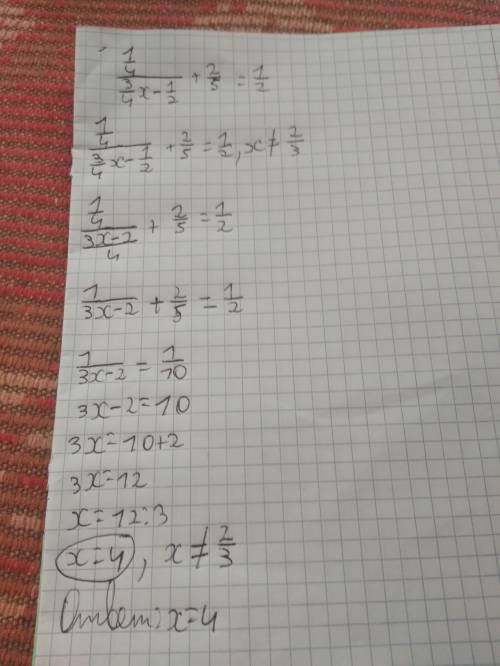 1/4 / (3/4 x - 1/2) + 2/5 = 1/2
1/4 / (3/4 x - 1/2) + 2/5 = 1/2, x ≠ 2/3
1/4 / ((3x-2)/4) + 2/5 = 1/2
1/(3x-2) + 2/5 = 1/2
1/(3x-2) = 1/10
3x-2=10
3x=10+2
3x=12
x=12:3
x=4, x ≠ 2/3
Ответ: x=4